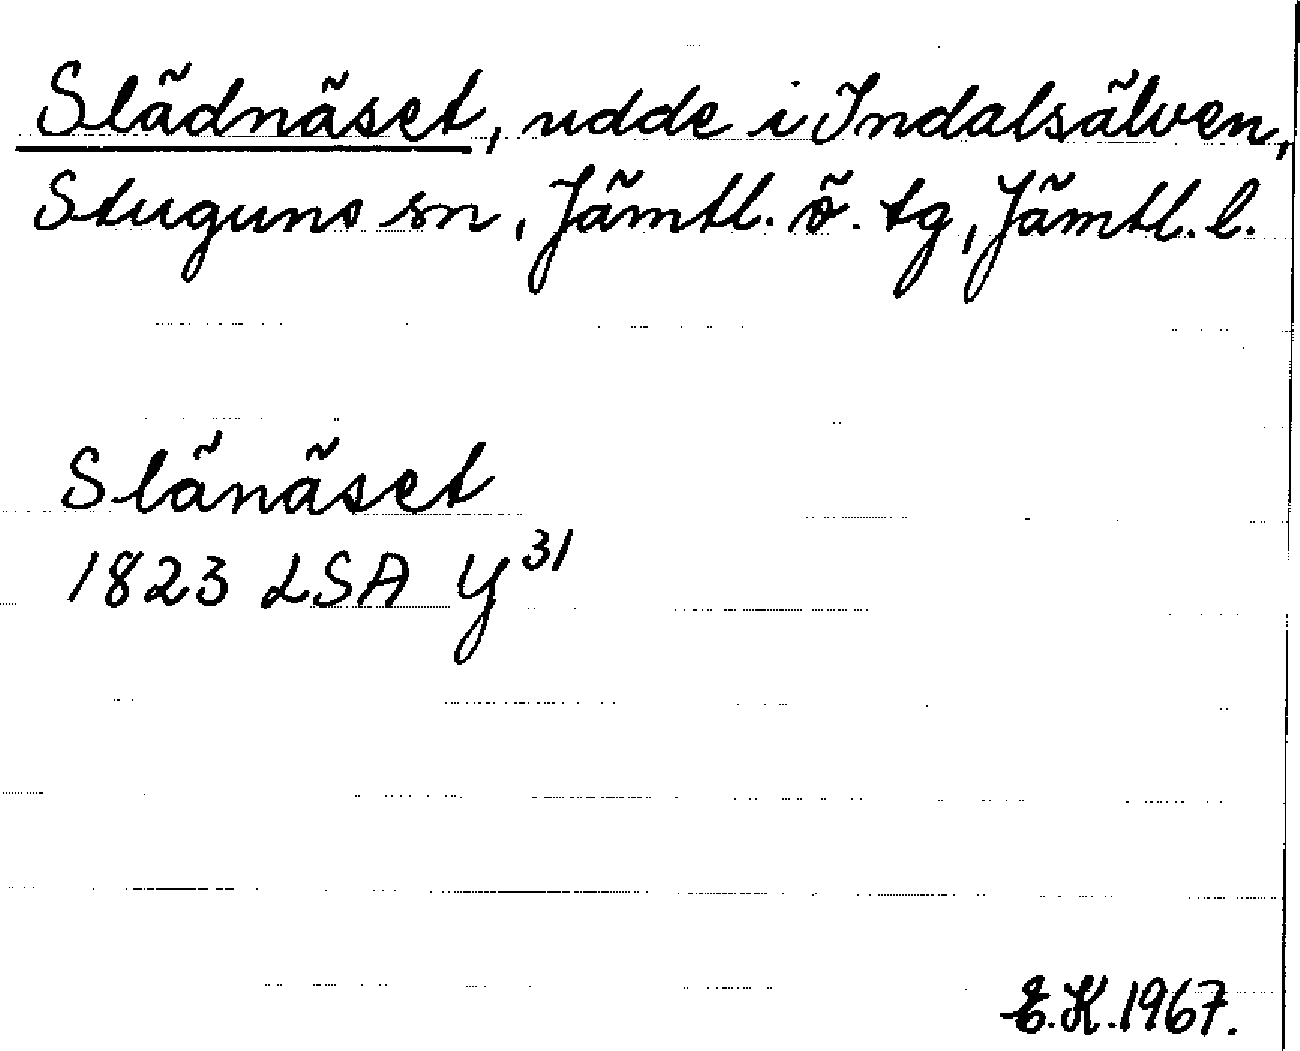 Slädnäset, udde i Indalsälven,
Stuguns sn, Jämtl. ö. tg, Jämtl. l.
Slänäset
1823 LSA Y31
E.K. 1967.